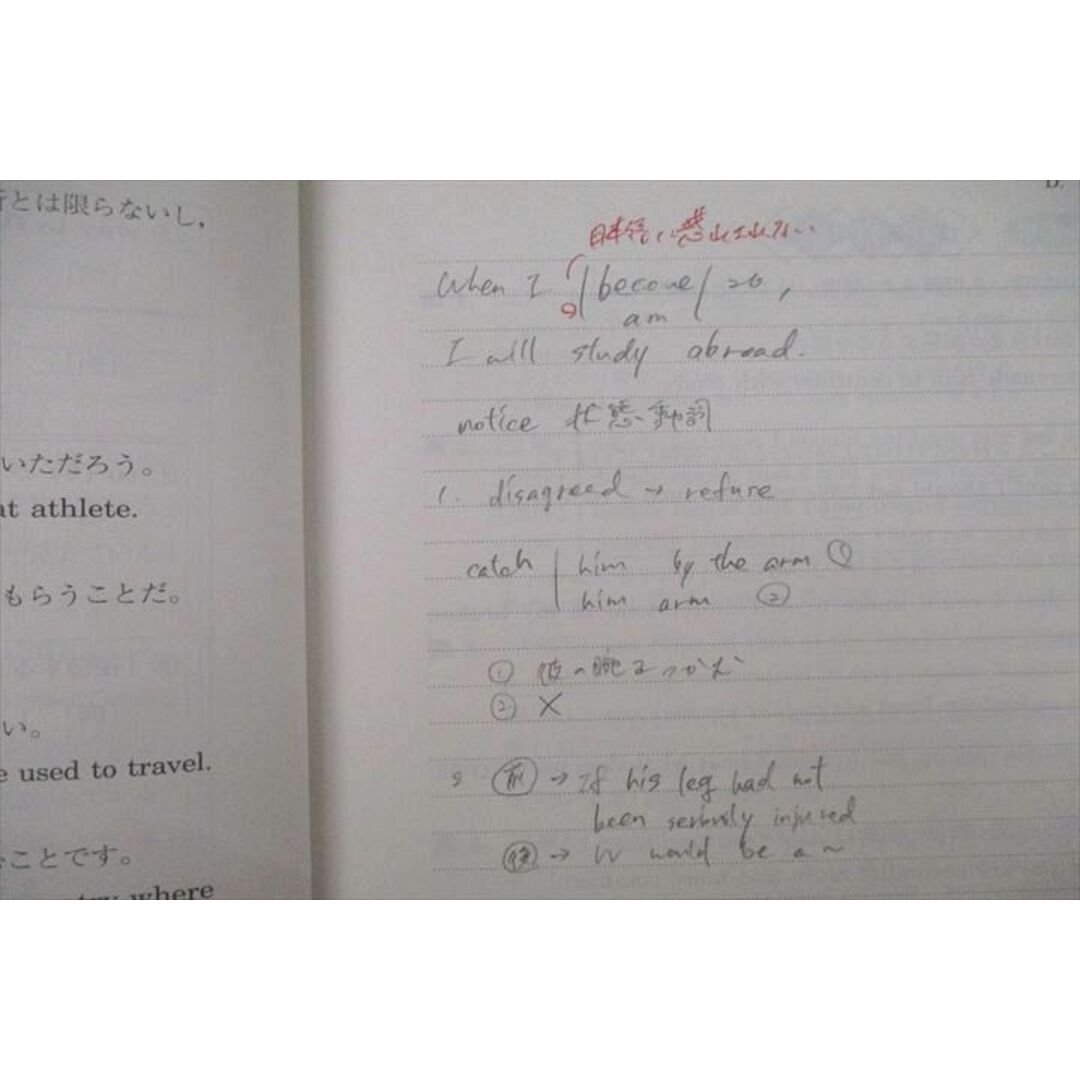 とは限らないし,
いただろう。
at athlete.
もらうことだ。
い。
e used to travel.
ことです。
try where
D.
日本語に惑わされない
When I become 20,
am
I will study abroad.
notice 状態動詞
1. disagreed → refure
catch him by the arm ①
him arm ②
① 彼の腕をつかむ
② ×
前 → If his leg had not
been seriously injured
後 → would be a ~